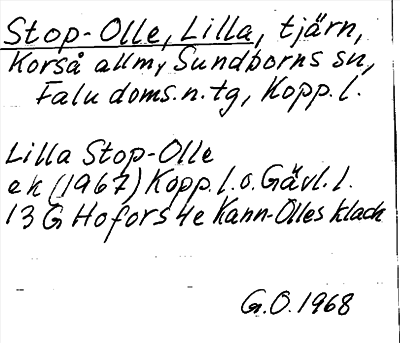 Stop-Olle, Lilla, tjärn,
Korså allm, Sundborns sn,
Falu doms.n.tg, Kopp.l.
Lilla Stop-Olle
ek (1967) Kopp.l.o.Gävl.l.
13 G Hofors 4e Kann-Olles klack
G.O.1968